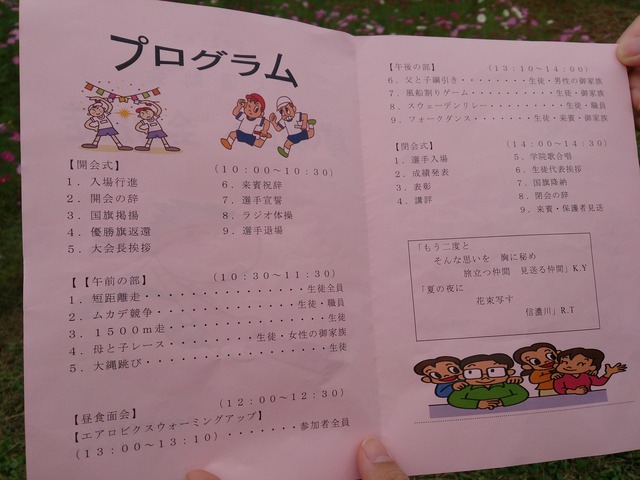 プログラム
【開会式】 （10：00～10：30）
1．入場行進 6．来賓祝辞
2．開会の辞 7．選手宣誓
3．国旗掲揚 8．ラジオ体操
4．優勝旗返還 9．選手退場
5．大会長挨拶
【【午前の部】 （10：30～11：30）
1．短距離走・・・・・・・・・・・・・・・・・生徒全員
2．ムカデ競争・・・・・・・・・・・・・・・生徒・職員
3．1500m走・・・・・・・・・・・・・・・・・・生徒
4．母と子レース・・・・・・・・・生徒・女性の御家族
5．大縄跳び・・・・・・・・・・・・・・・・・・・生徒
【昼食面会】 （12：00～12：30）
【エアロビクスウォーミングアップ】
（13：00～13：10）・・・・・・・参加者全員
【午後の部】 （13：10～14：00）
6．父と子綱引き・・・・・・・・生徒・男性の御家族
7．風船割りゲーム・・・・・・・・・・生徒・御家族
8．スウェーデンリレー・・・・・・・・・生徒・職員
9．フォークダンス・・・・・・・生徒・来賓・御家族
【閉会式】 （14：00～14：30）
1．選手入場 5．学院歌合唱
2．成績発表 6．生徒代表挨拶
3．表彰 7．国旗降納
4．講評 8．閉会の辞
9．来賓・保護者見送
「もう二度と
そんな思いを 胸に秘め
旅立つ仲間 見送る仲間」K.Y
「夏の夜に
花束写す
信濃川」R.T